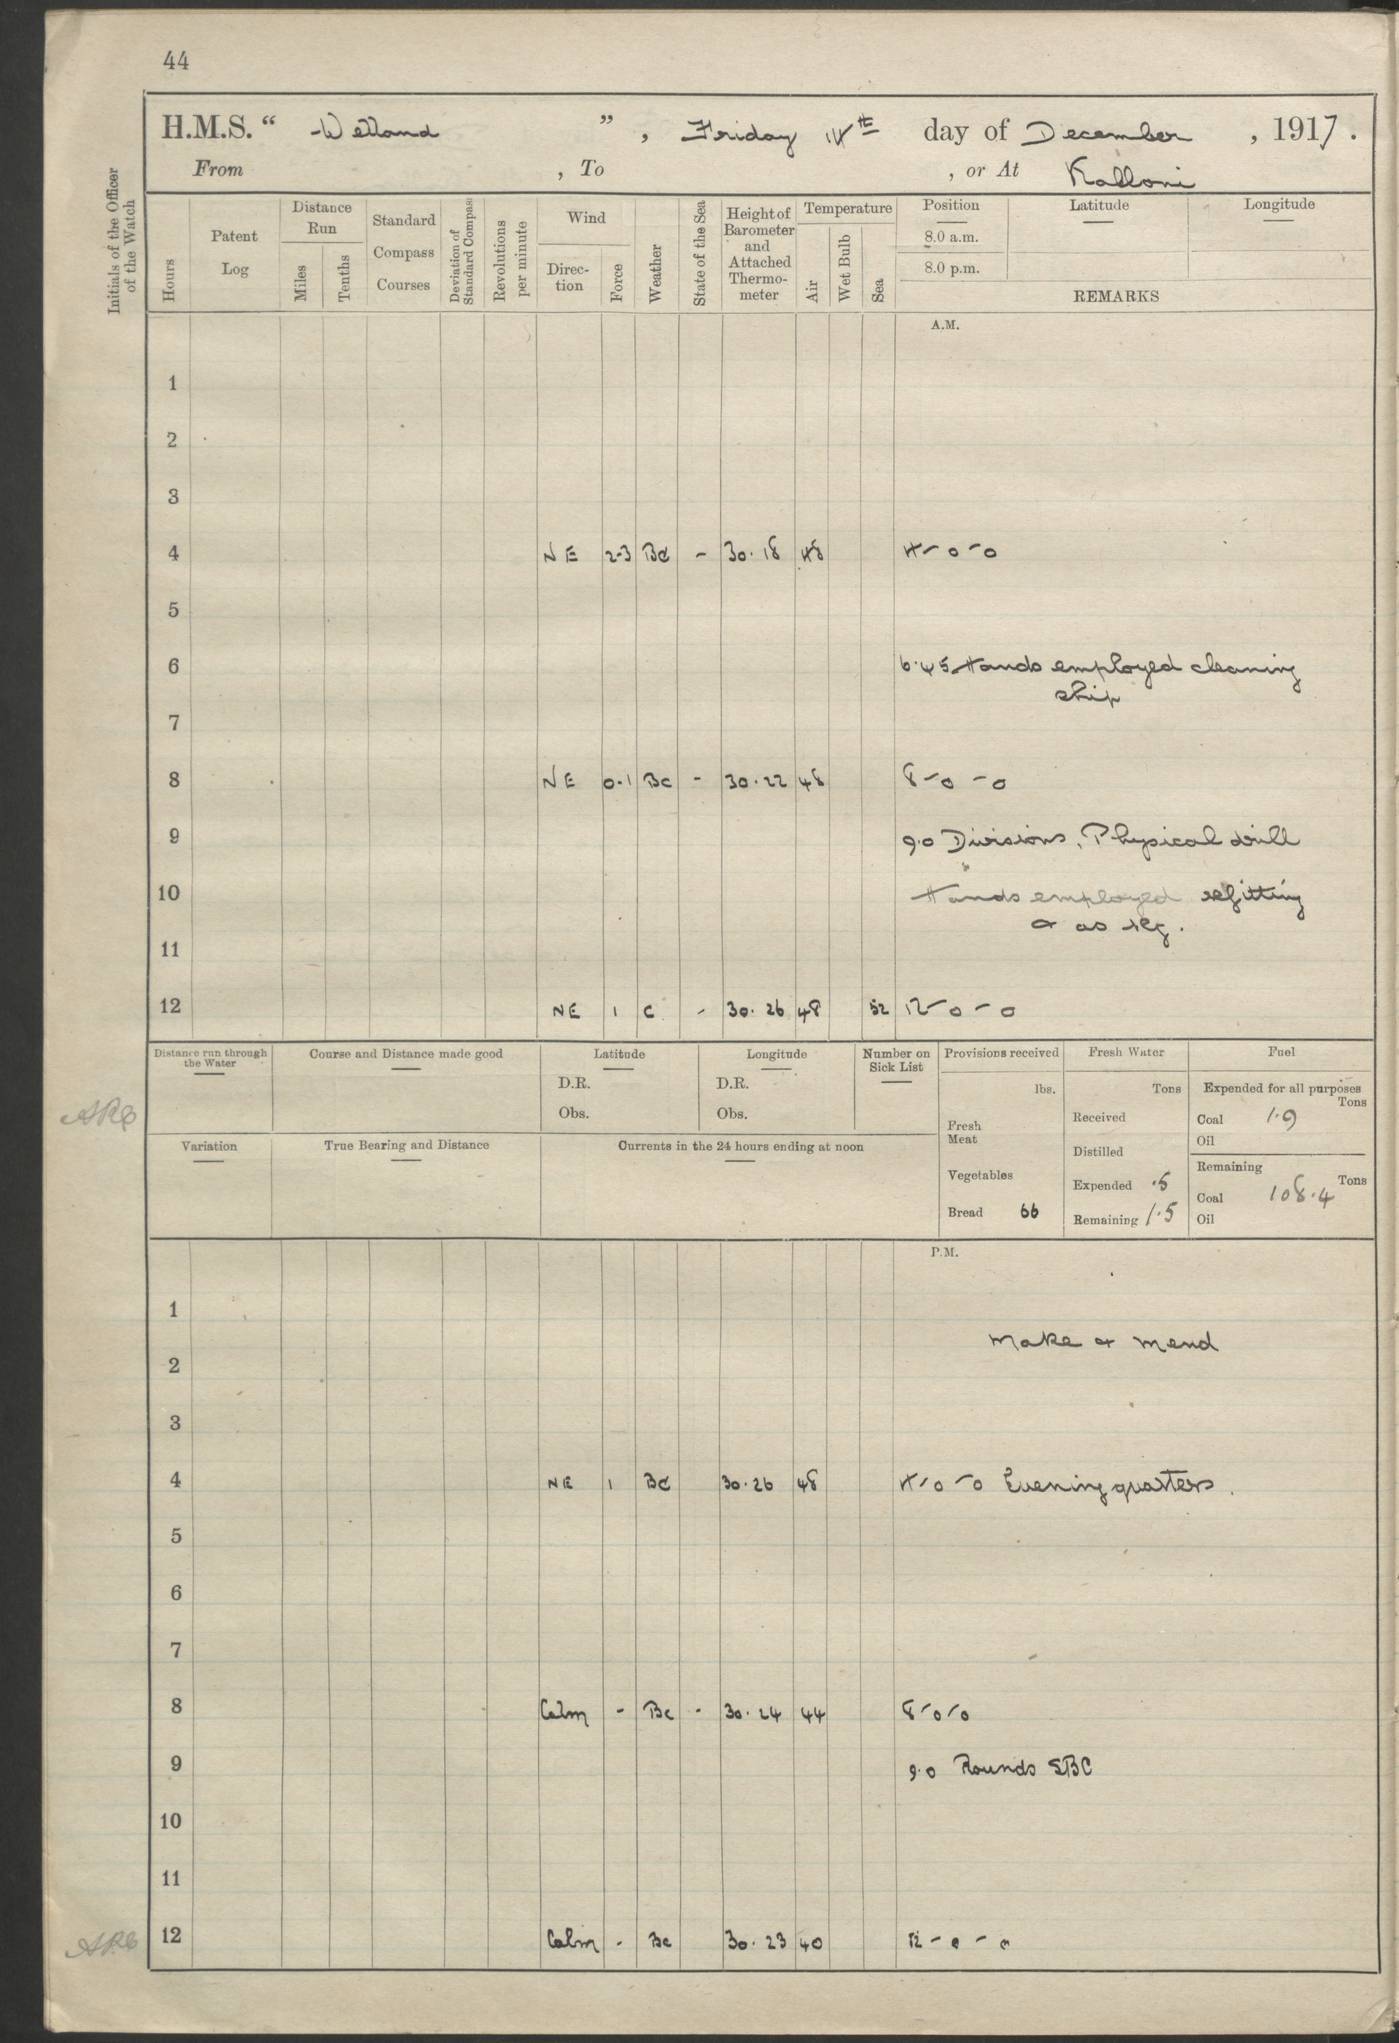 44
H.M.S. " Welland ", Friday 14th day of December, 1917.
From , To , or At Kalloni
Initials of the Officer of the Watch
Hours
Patent Log
Distance Run
Miles
Tenths
Standard Compass Courses
Deviation of Standard Compass
Revolutions per minute
Wind
Direction
Force
Weather
State of the Sea
Height of Barometer and Attached Thermometer
Temperature
Air
Wet Bulb
Sea
Position
8.0 a.m.
8.0 p.m.
Latitude
Longitude
REMARKS
A.M.
1
2
3
4 NE 2-3 Bc - 30.18 48 4-0-0
5
6 6.45 Hands employed cleaning
ship
7
8 NE 0-1 Bc - 30.22 48 8-0-0
9 9.0 Divisions, Physical drill
10 Hands employed refitting
& as req.
11
12 NE 1 C - 30.26 48 52 12-0-0
Distance run through the Water
Course and Distance made good
Latitude
D.R.
Obs.
Longitude
D.R.
Obs.
Number on Sick List
Provisions received
lbs.
Fresh Meat
Vegetables
Bread 66
Fresh Water
Tons
Received
Distilled
Expended .5
Remaining 1.5
Fuel
Expended for all purposes
Tons
Coal 1.9
Oil
Remaining
Tons
Coal 108.4
Oil
Variation
True Bearing and Distance
Currents in the 24 hours ending at noon
P.M.
1
Make & mend
2
3
4 NE 1 Bc 30.26 48 4-0-0 Evening quarters.
5
6
7
8 Calm - Bc - 30.24 44 8-0-0
9 9.0 Rounds SBC
10
11
12 Calm - Bc 30.23 40 12-0-0